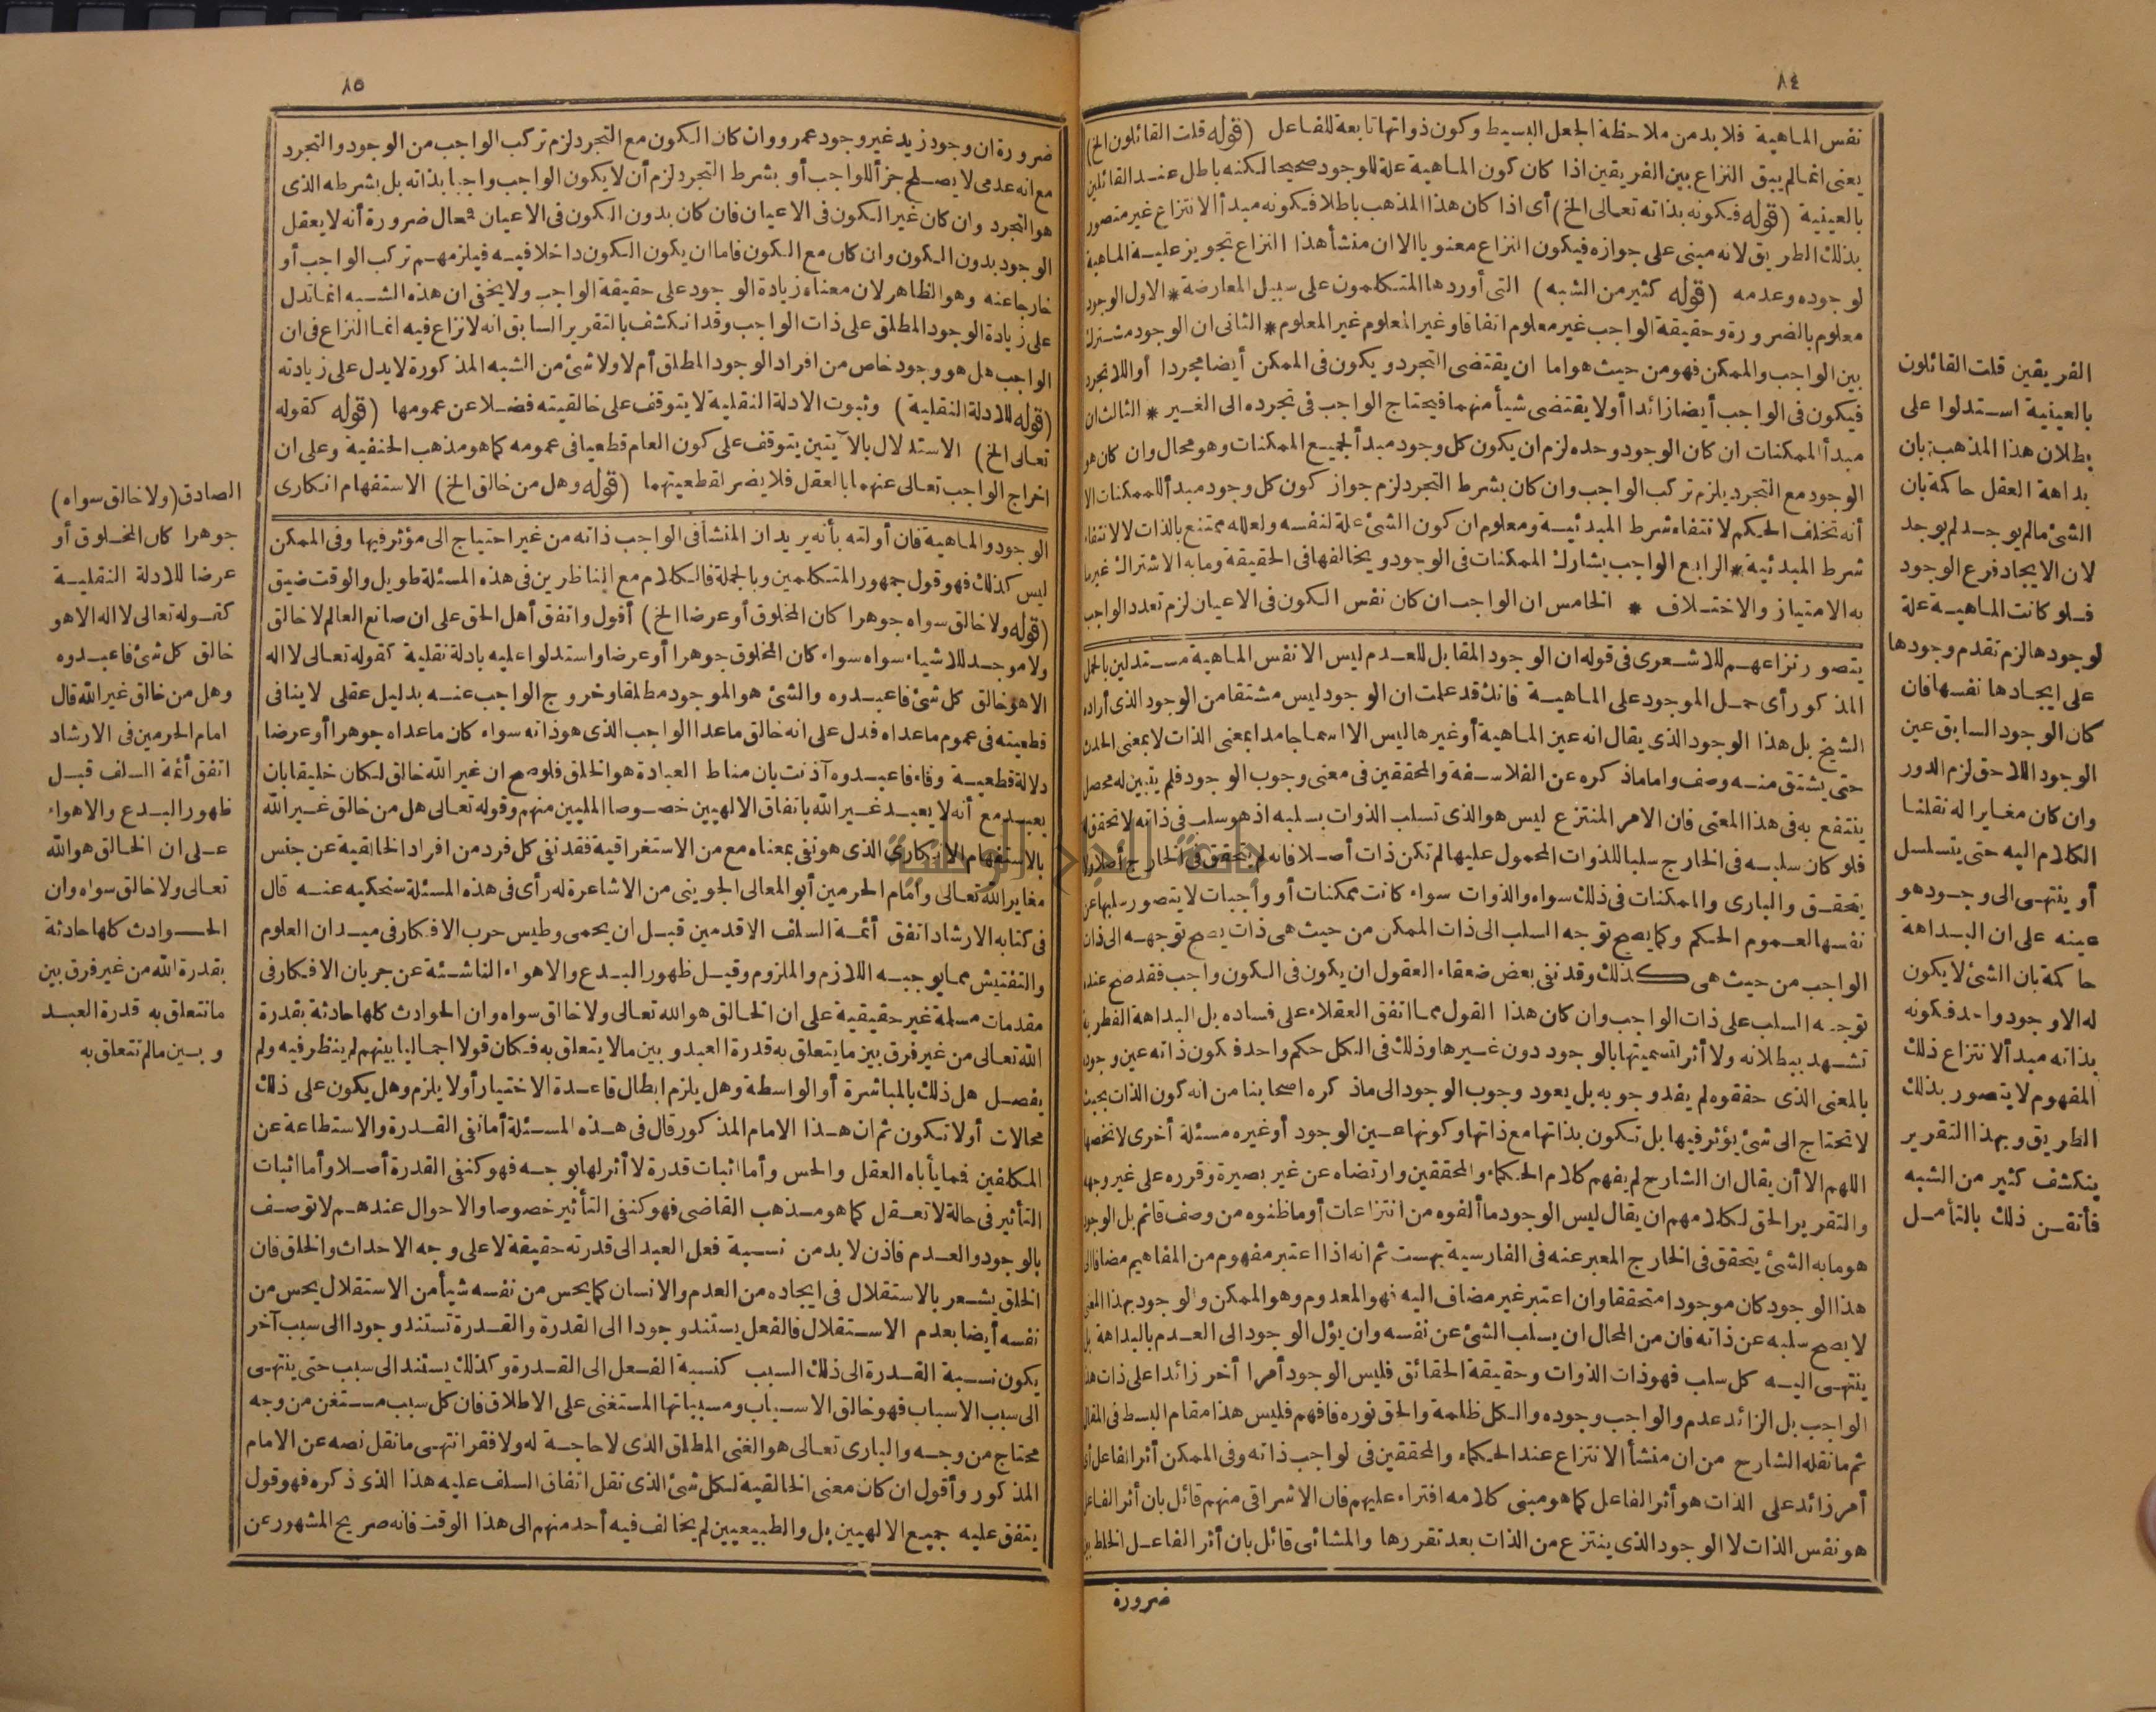 ٨٤
نفس الماهية فلا بد من ملاحظة الجعل البسيط وكون ذواتها تابعة للفاعل (قوله قلت القائلون الخ)
يعنى انما لم يبق النزاع بين الفريقين اذا كان كون الماهية علة للوجود صحيحا لكنه باطل عند القائلين
بالعينية (قوله فيكونه بذاته تعالى الخ) أى اذا كان هذا المذهب باطلا فكونه مبدأ الانتزاع غير متصور
بذلك الطريق لانه مبنى على جوازه فيكون النزاع معنويا الا ان منشأ هذا النزاع تجويز علية الماهية
لوجوده وعدمه (قوله كثير من الشبه) التى أوردها المتكلمون على سبيل المعارضة * الاول الوجود
معلوم بالضرورة وحقيقة الواجب غير معلوم اتفاقا وغير المعلوم غير المعلوم * الثانى ان الوجود مشترك
بين الواجب والممكن فهو من حيث هو اما ان يقتضى التجرد ويكون فى الممكن أيضا مجردا أو اللاتجرد
فيكون فى الواجب أيضا زائدا أو لا يقتضى شيأ منهما فيحتاج الواجب فى تجرده الى الغير * الثالث ان
مبدأ الممكنات ان كان الوجود وحده لزم ان يكون كل وجود مبدأ لجميع الممكنات وهو محال وان كان هو
الوجود مع التجرد يلزم تركب الواجب وان كان بشرط التجرد لزم جواز كون كل وجود مبدأ للممكنات الا
أنه تخلف الحكم لانتفاء شرط المبدئية ومعلوم ان كون الشئ علة لنفسه ولعلله ممتنع بالذات لا لانتفاء
شرط المبدئية * الرابع الواجب يشارك الممكنات فى الوجود ويخالفها فى الحقيقة وما به الاشتراك غير ما
به الامتياز والاختلاف * الخامس ان الواجب ان كان نفس الكون فى الاعيان لزم تعدد الواجب
يتصور نزاعهم للاشعرى فى قوله ان الوجود المقابل للعدم ليس الا نفس الماهية مستدلين بالحمل
المذكور أى حمل الموجود على الماهية فانك قد علمت ان الوجود ليس مشتقا من الوجود الذى أراده
الشيخ بل هذا الوجود الذى يقال انه عين الماهية أو غيرها ليس الا اسما جامدا بمعنى الذات لا بمعنى الحدث
حتى يشتق منه وصف واما ماذكره عن الفلاسفة والمحققين فى معنى وجوب الوجود فلم يتبين له محصل
ينتفع به فى هذا المعنى فان الامر المنتزع ليس هو الذى تسلب الذوات بسلبه اذ هو سلب فى ذاته لا تحقق له
فلو كان سلبه فى الخارج سلبا للذوات المحمول عليها لم تكن ذات أصلا فانه لم يتحقق فى الخارج أصلا ولا
يتحقق والبارى والممكنات فى ذلك سواء والذوات سواء كانت ممكنات أو واجبات لا يتصور سلبها عن
نفسها العموم الحكم وكما يصح توجه السلب الى ذات الممكن من حيث هى ذات يصح توجهه الى ذات
الواجب من حيث هى كذلك وقد نفى بعض ضعفاء العقول ان يكون فى الكون واجب فقد صح عنده
توجه السلب على ذات الواجب وان كان هذا القول مما اتفق العقلاء على فساده بل البداهة الفطرية
تشهد ببطلانه ولا أثر لتسميتها بالوجود دون غيرها وذلك فى الكل حكم واحد فكون ذاته عين وجوده
بالمعنى الذى حققوه لم يفد وجوبه بل يعود وجوب الوجود الى ماذكره اصحابنا من انه كون الذات بحيث
لا تحتاج الى شئ يؤثر فيها بل تكون بذاتها مع ذاتها وكونها عين الوجود أو غيره مسئلة أخرى لا تخصها
اللهم الا أن يقال ان الشارح لم يفهم كلام الحكماء والمحققين وارتضاه عن غير بصيرة وقرره على غير وجهه
والتقرير الحق لكلامهم ان يقال ليس الوجود ما ألفوه من انتزاعات أو ما ظنوه من وصف قائم بل الوجود
هو ما به الشئ يتحقق فى الخارج المعبر عنه فى الفارسية بهست ثم انه اذا اعتبر مفهوم من المفاهيم مضافا الى
هذا الوجود كان موجودا متحققا وان اعتبر غير مضاف اليه فهو المعدوم وهو الممكن والوجود بهذا المعنى
لا يصح سلبه عن ذاته فان من المحال ان يسلب الشئ عن نفسه وان يؤل الوجود الى العدم بالبداهة بل
ينتهى اليه كل سلب فهو ذات الذوات وحقيقة الحقائق فليس الوجود أمرا أخر زائدا على ذات هذا
الواجب بل الزائد عدم والواجب وجوده والكل ظلمة والحق نوره فافهم فليس هذا مقام البسط فى المقال
ثم ما نقله الشارح من ان منشأ الانتزاع عند الحكماء والمحققين فى لواجب ذاته وفى الممكن أثر الفاعل أى
أمر زائد على الذات هو أثر الفاعل كما هو مبنى كلامه افتراء عليهم فان الاشراقى منهم قائل بان أثر الفاعل
هو نفس الذات لا الوجود الذى ينتزع من الذات بعد تقررها والمشائى قائل بان أثر الفاعل الخلط بين
ضرورة
الفريقين قلت القائلون
بالعينية استدلوا على
بطلان هذا المذهب بان
بداهة العقل حاكمة بان
الشئ مالم يوجد لم يوجد
لان الايجاد فرع الوجود
فلو كانت الماهية علة
لوجودها لزم تقدم وجودها
على ايجادها نفسها فان
كان الوجود السابق عين
الوجود اللاحق لزم الدور
وان كان مغايرا له نقلنا
الكلام اليه حتى يتسلسل
أو ينتهى الى وجود هو
عينه على ان البداهة
حاكمة بان الشئ لا يكون
له الا وجود واحد فكونه
بذاته مبدأ لانتزاع ذلك
المفهوم لا يتصور بذلك
الطريق وبهذا التقرير
ينكشف كثير من الشبه
فأتقن ذلك بالتأمل
٨٥
ضرورة ان وجود زيد غير وجود عمرو وان كان الكون مع التجرد لزم تركب الواجب من الوجود والتجرد
مع انه عدمى لا يصلح جزأ للواجب أو بشرط التجرد لزم أن لا يكون الواجب واجبا بذاته بل بشرطه الذى
هو التجرد وان كان غير الكون فى الاعيان فان كان بدون الكون فى الاعيان فمحال ضرورة أنه لا يعقل
الوجود بدون الكون وان كان مع الكون فاما ان يكون الكون داخلا فيه فيلزمهم تركب الواجب أو
خارجا عنه وهو الظاهر لان معناه زيادة الوجود على حقيقة الواجب ولا يخفى ان هذه الشبه انما تدل
على زيادة الوجود المطلق على ذات الواجب وقد انكشف بالتقرير السابق انه لا نزاع فيه انما النزاع فى ان
الواجب هل هو وجود خاص من افراد الوجود المطلق أم لا ولا شئ من الشبه المذكورة لا يدل على زيادته
(قوله للادلة النقلية) وثبوت الادلة النقلية لا يتوقف على خالقيته فضلا عن عمومها (قوله كقوله
تعالى الخ) الاستدلال بالآيتين يتوقف على كون العام قطعيا فى عمومه كما هو مذهب الحنفية وعلى ان
اخراج الواجب تعالى عنهما بالعقل فلا يضر لقطعيتهما (قوله وهل من خالق الخ) الاستفهام انكارى
الوجود والماهية فان أولته بأنه يريد ان المنشأ فى الواجب ذاته من غير احتياج الى مؤثر فيها وفى الممكن
ليس كذلك فهو قول جمهور المتكلمين وبالجملة فالكلام مع الناظرين فى هذه المسئلة طويل والوقت ضيق
(قوله ولا خالق سواه جوهرا كان المخلوق أو عرضا الخ) أقول واتفق أهل الحق على ان صانع العالم لا خالق
ولا موجد للاشياء سواه سواء كان المخلوق جوهرا أو عرضا واستدلوا عليه بادلة نقلية كقوله تعالى لا اله
الا هو خالق كل شئ فاعبدوه والشئ هو الموجود مطلقا وخروج الواجب عنه بدليل عقلى لا ينافى
قطعيته فى عموم ماعداه فدل على انه خالق ماعدا الواجب الذى هو ذاته سواء كان ماعداه جوهرا أو عرضا
دلالة قطعية وفاء فاعبدوه آذنت بان مناط العبادة هو الخلق فلو صح ان غير الله خالق لكان خليقا بان
يعبد مع أنه لا يعبد غير الله باتفاق الالهيين خصوصا المليين منهم وقوله تعالى هل من خالق غير الله
بالاستفهام الانكارى الذى هو نفى بمعناه مع من الاستغراقية فقد نفى كل فرد من افراد الخالقية عن جنس
مغاير الله تعالى وامام الحرمين أبو المعالى الجوينى من الاشاعرة له رأى فى هذه المسئلة سنحكيه عنه قال
فى كتابه الارشاد اتفق أئمة السلف الاقدمين قبل ان يحمى وطيس حرب الافكار فى ميدان العلوم
والتفتيش مما يوجبه اللازم والملزوم وقبل ظهور البدع والاهواء الناشئة عن جريان الافكار فى
مقدمات مسلمة غير حقيقية على ان الخالق هو الله تعالى ولا خالق سواه وان الحوادث كلها حادثة بقدرة
الله تعالى من غير فرق بين ما يتعلق به قدرة العبد وبين مالا يتعلق به فكان قولا اجماليا بينهم لم ينظر فيه ولم
يفصل هل ذلك بالمباشرة أو الواسطة وهل يلزم ابطال قاعدة الاختيار أولا يلزم وهل يكون على ذلك
محالات أولا تكون ثم ان هذا الامام المذكور قال فى هذه المسئلة أما نفى القدرة والاستطاعة عن
المكلفين فما يأباه العقل والحس وأما اثبات قدرة لا أثر لها بوجه فهو كنفى القدرة أصلا وأما اثبات
التأثير فى حالة لا تعقل كما هو مذهب القاضى فهو كنفى التأثير خصوصا والاحوال عندهم لا توصف
بالوجود والعدم فاذن لا بد من نسبة فعل العبد الى قدرته حقيقة لا على وجه الاحداث والخلق فان
الخلق يشعر بالاستقلال فى ايجاده من العدم والانسان كما يحس من نفسه شيأ من الاستقلال يحس من
نفسه أيضا بعدم الاستقلال فالفعل يستند وجودا الى القدرة والقدرة تستند وجودا الى سبب آخر
يكون نسبة القدرة الى ذلك السبب كنسبة الفعل الى القدرة وكذلك يستند الى سبب حتى ينتهى
الى سبب الاسباب فهو خالق الاسباب ومسبباتها المستغنى على الاطلاق فان كل سبب مستغن من وجه
محتاج من وجه والبارى تعالى هو الغنى المطلق الذى لا حاجة له ولا فقر انتهى ما نقل نصه عن الامام
المذكور وأقول ان كان معنى الخالقية لكل شئ الذى نقل اتفاق السلف عليه هذا الذى ذكره فهو قول
يتفق عليه جميع الالهيين بل والطبيعيين لم يخالف فيه أحد منهم الى هذا الوقت فانه صريح المشهور عن
الصادق (ولا خالق سواه)
جوهرا كان المخلوق أو
عرضا للادلة النقلية
كقوله تعالى لا اله الا هو
خالق كل شئ فاعبدوه
وهل من خالق غير الله قال
امام الحرمين فى الارشاد
اتفق أئمة السلف قبل
ظهور البدع والاهواء
على ان الخالق هو الله
تعالى ولا خالق سواه وان
الحوادث كلها حادثة
بقدرة الله من غير فرق بين
ما تتعلق به قدرة العبد
وبين مالم تتعلق به
جامعة النجاح الوطنية